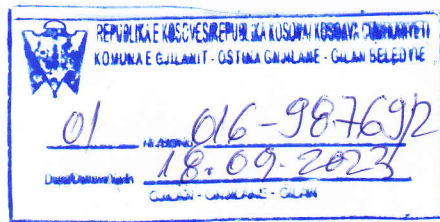 REPUBLIKA E KOSOVËS/REPUBLIKA KOSOVA/KOSOVA CUMHURIYETI
KOMUNA E GJILANIT - OPŠTINA GNJILANE - GILAN BELEDIYE
01 016-98769/2
18.09.2023
GJILAN - GNJILANE - GILAN